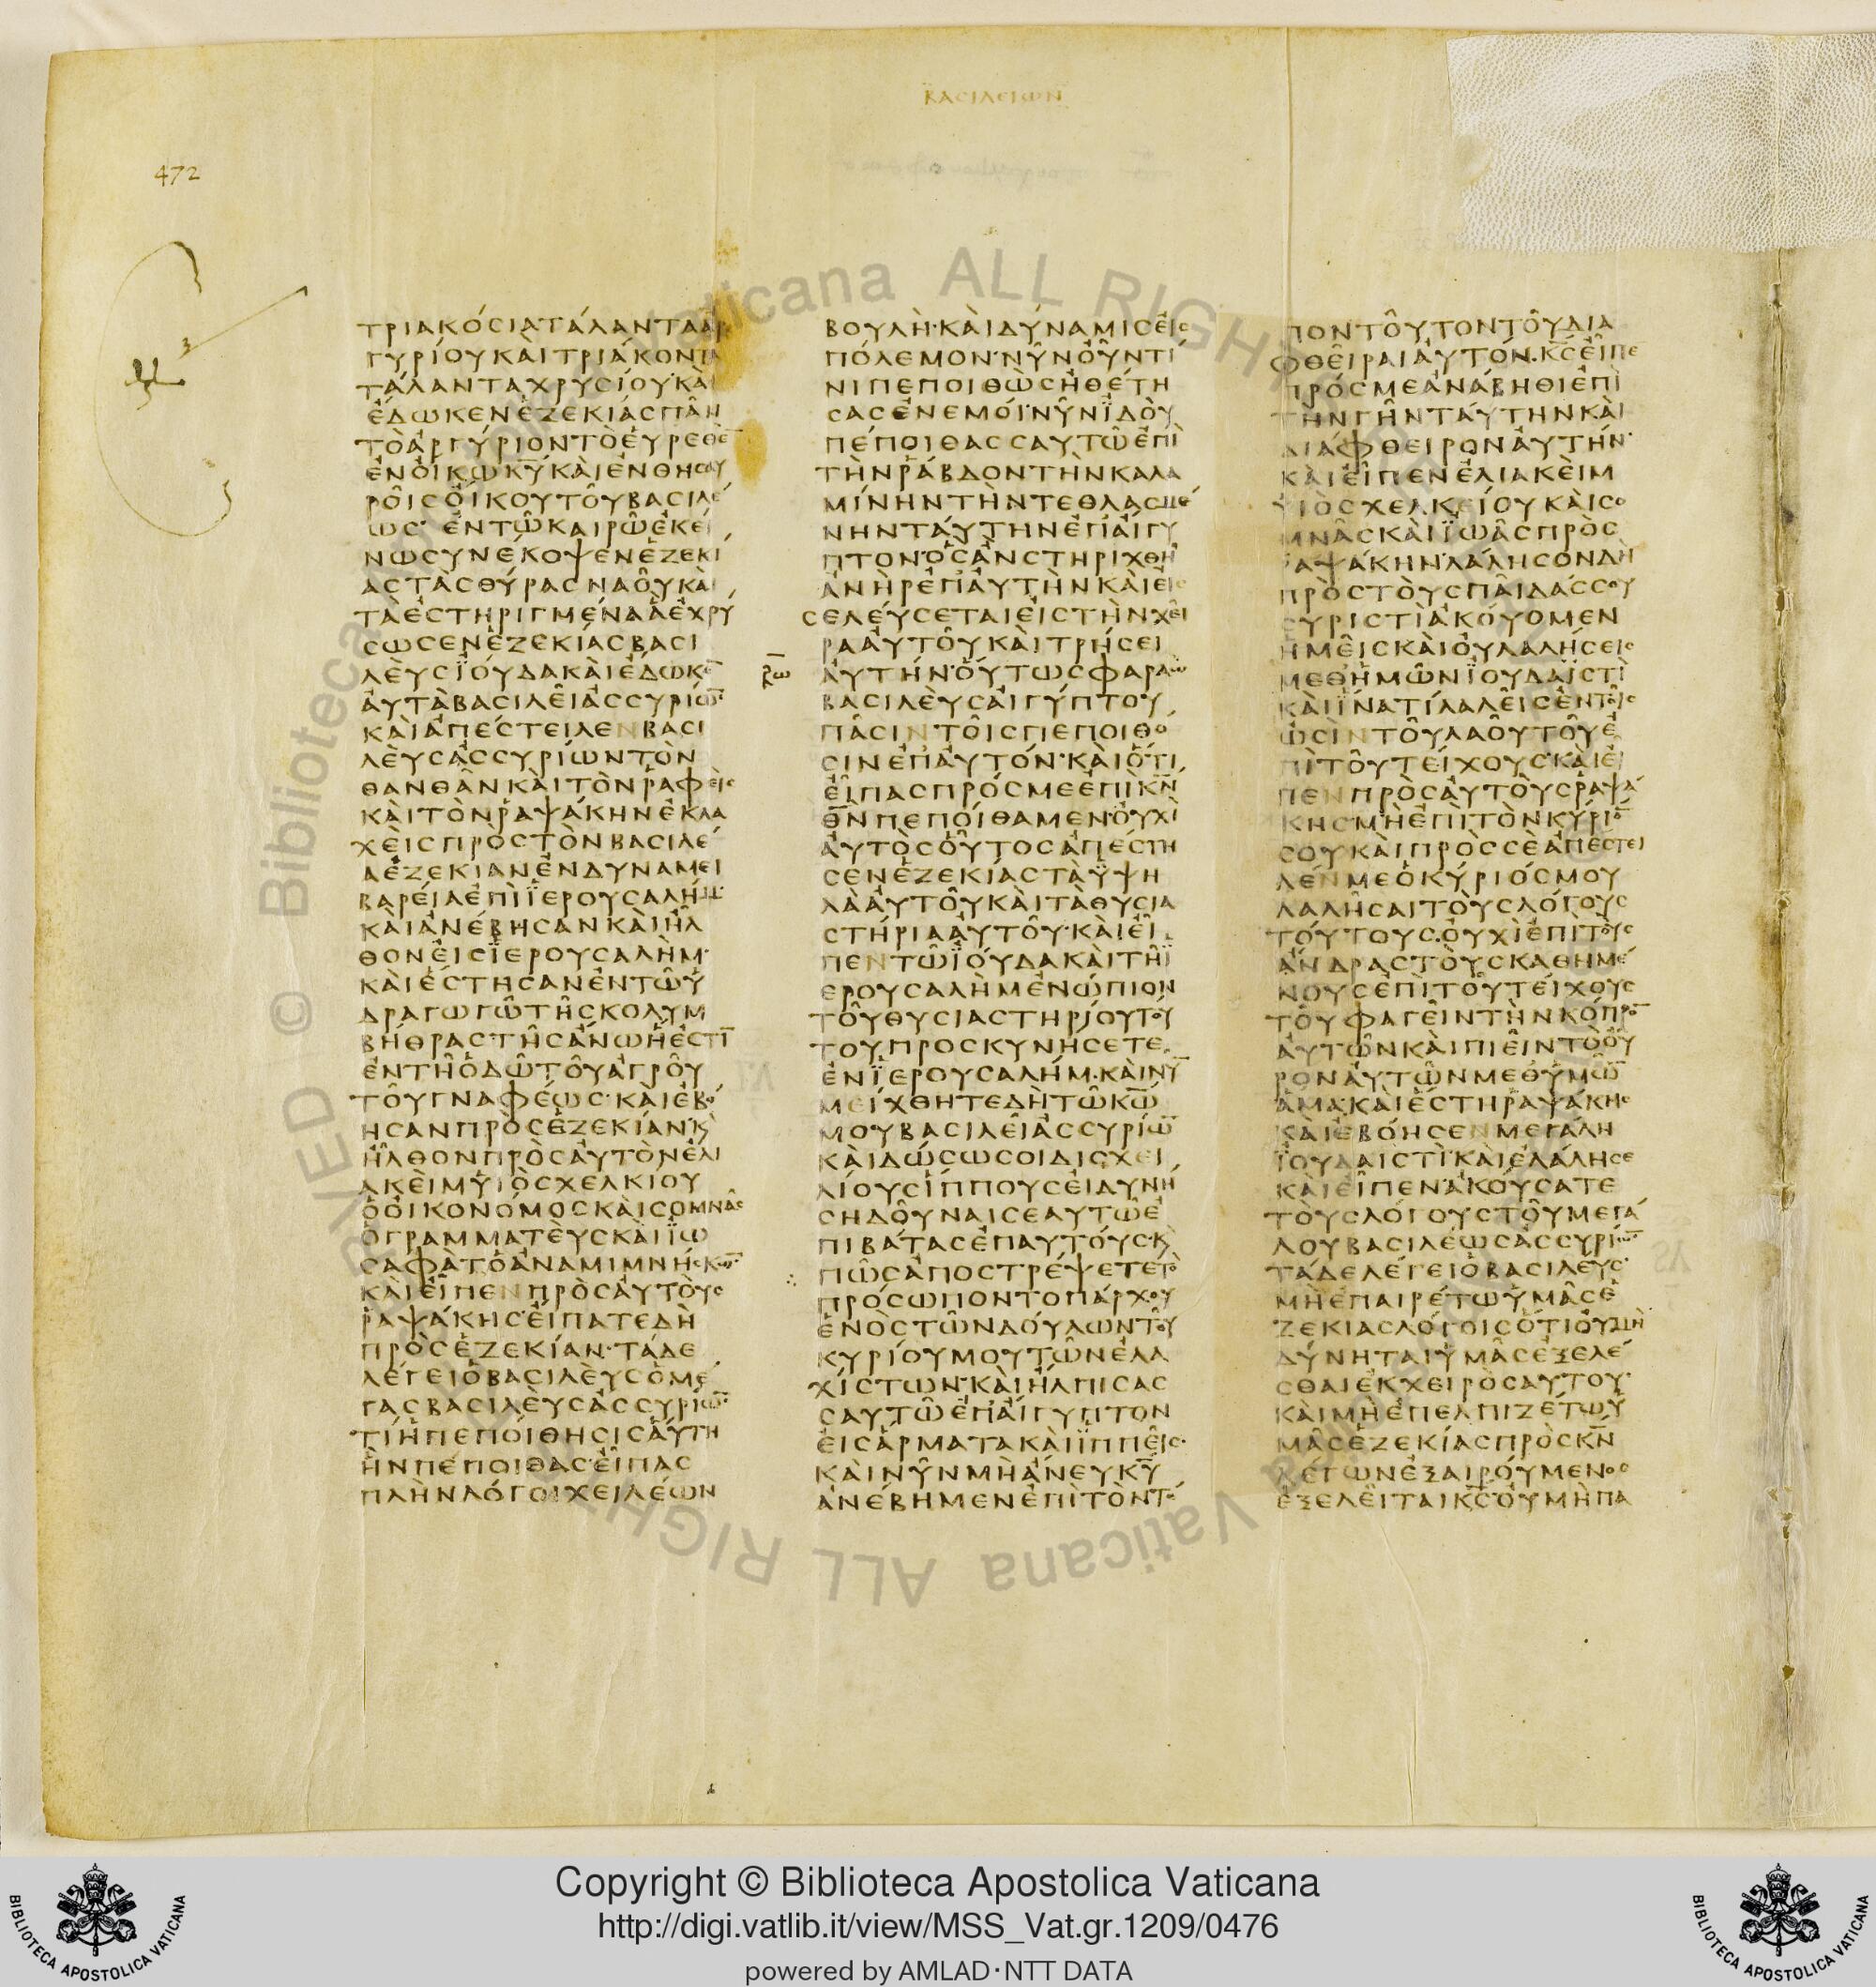 ΒΑΣΙΛΕΙΩΝ
472
ΤΡΙΑΚΟΣΙΑΤΑΛΑΝΤΑΑΡ
ΓΥΡΙΟΥΚΑΙΤΡΙΑΚΟΝΤΑ
ΤΑΛΑΝΤΑΧΡΥΣΙΟΥΚΑΙ
ΕΔΩΚΕΝΕΖΕΚΙΑΣΠΑΝ
ΤΟΑΡΓΥΡΙΟΝΤΟΕΥΡΕΘΕ̅
ΕΝΟΙΚΩΚ̅Υ̅ΚΑΙΕΝΘΗΣΑΥ
ΡΟΙΣΟΙΚΟΥΤΟΥΒΑΣΙΛΕ
ΩΣ ΕΝΤΩΚΑΙΡΩΕΚΕΙ
ΝΩΣΥΝΕΚΟΨΕΝΕΖΕΚΙ
ΑΣΤΑΣΘΥΡΑΣΝΑΟΥΚΑΙ
ΤΑΕΣΤΗΡΙΓΜΕΝΑΑΕΧΡΥ
ΣΩΣΕΝΕΖΕΚΙΑΣΒΑΣΙ
ΛΕΥΣΪΟΥΔΑΚΑΙΕΔΩΚΕ̅
ΑΥΤΑΒΑΣΙΛΕΙΑΣΣΥΡΙΩ̅
ΚΑΙΑΠΕΣΤΕΙΛΕΝΒΑΣΙ
ΛΕΥΣΑΣΣΥΡΙΩΝΤΟΝ
ΘΑΝΘΑΝΚΑΙΤΟΝΡΑΦΕΙΣ
ΚΑΙΤΟΝΡΑΨΑΚΗΝΕΚΛΑ
ΧΕΙΣΠΡΟΣΤΟΝΒΑΣΙΛΕ
ΑΕΖΕΚΙΑΝΕΝΔΥΝΑΜΕΙ
ΒΑΡΕΙΑΕΠΙΪΕΡΟΥΣΑΛΗΜ·
ΚΑΙΑΝΕΒΗΣΑΝΚΑΙΗΛ
ΘΟΝΕΙΣΪΕΡΟΥΣΑΛΗΜ·
ΚΑΙΕΣΤΗΣΑΝΕΝΤΩΥ
ΔΡΑΓΩΓΩΤΗΣΚΟΛΥΜ
ΒΗΘΡΑΣΤΗΣΑΝΩΗΕΣΤΙ̅
ΕΝΤΗΟΔΩΤΟΥΑΓΡΟΥ
ΤΟΥΓΝΑΦΕΩΣ·ΚΑΙΕΒΟ
ΗΣΑΝΠΡΟΣΕΖΕΚΙΑΝΚ
ΗΛΘΟΝΠΡΟΣΑΥΤΟΝΕΛΙ
ΑΚΕΙΜΥΙΟΣΧΕΛΚΙΟΥ
ΟΟΙΚΟΝΟΜΟΣΚΑΙΣΟΜΝΑΣ
ΟΓΡΑΜΜΑΤΕΥΣΚΑΙΪΩ
ΣΑΦΑΤΟΑΝΑΜΙΜΝΗΣΚΩ̅·
ΚΑΙΕΙΠΕΝΠΡΟΣΑΥΤΟΥΣ
ΡΑΨΑΚΗΣΕΙΠΑΤΕΔΗ
ΠΡΟΣΕΖΕΚΙΑΝ·ΤΑΔΕ
ΛΕΓΕΙΟΒΑΣΙΛΕΥΣΟΜΕ
ΓΑΣΒΑΣΙΛΕΥΣΑΣΣΥΡΙΩ̅·
ΤΙΗΠΕΠΟΙΘΗΣΙΣΑΥΤΗ
ΗΝΠΕΠΟΙΘΑΣ·ΕΙΠΑΣ
ΠΛΗΝΛΟΓΟΙΧΕΙΛΕΩΝ
ΒΟΥΛΗ·ΚΑΙΔΥΝΑΜΙΣΕΙΣ
ΠΟΛΕΜΟΝ·ΝΥΝΟΥΝΤΙ
ΝΙΠΕΠΟΙΘΩΣΗΘΕΤΗ
ΣΑΣΕΝΕΜΟΙ·ΝΥΝΪΔΟΥ
ΠΕΠΟΙΘΑΣΣΑΥΤΩΕΠΙ
ΤΗΝΡΑΒΔΟΝΤΗΝΚΑΛΑ
ΜΙΝΗΝΤΗΝΤΕΘΛΑΣΜΕ
ΝΗΝΤΑΥΤΗΝΕΠΑΙΓΥ
ΠΤΟΝ·ΟΣΑΝΣΤΗΡΙΧΘΗ
ΑΝΗΡΕΠΑΥΤΗΝΚΑΙΕΙΣ
ΕΛΕΥΣΕΤΑΙΕΙΣΤΗΝΧΕΙ
ΡΑΑΥΤΟΥΚΑΙΤΡΗΣΕΙ
ΑΥΤΗΝ·ΟΥΤΩΣΦΑΡΑΩ
ΒΑΣΙΛΕΥΣΑΙΓΥΠΤΟΥ
ΠΑΣΙΝΤΟΙΣΠΕΠΟΙΘΟ
ΣΙΝΕΠΑΥΤΟΝ·ΚΑΙΟΤΙ
ΕΙΠΑΣΠΡΟΣΜΕΕΠΙΚ̅Ν̅
Θ̅Ν̅ΠΕΠΟΙΘΑΜΕΝ·ΟΥΧΙ
ΑΥΤΟΣΟΥΤΟΣΑΠΕΣΤΗ
ΣΕΝΕΖΕΚΙΑΣΤΑΫΨΗ
ΛΑΑΥΤΟΥΚΑΙΤΑΘΥΣΙΑ
ΣΤΗΡΙΑΑΥΤΟΥ·ΚΑΙΕΙ
ΠΕΝΤΩΪΟΥΔΑΚΑΙΤΗΪ
ΕΡΟΥΣΑΛΗΜΕΝΩΠΙΟΝ
ΤΟΥΘΥΣΙΑΣΤΗΡΙΟΥΤΟΥ
ΤΟΥΠΡΟΣΚΥΝΗΣΕΤΕ
ΕΝΪΕΡΟΥΣΑΛΗΜ·ΚΑΙΝΥ̅
ΜΕΙΧΘΗΤΕΔΗΤΩΚ̅Ω̅
ΜΟΥΒΑΣΙΛΕΙΑΣΣΥΡΙΩ̅
ΚΑΙΔΩΣΩΣΟΙΔΙΣΧΕΙ
ΛΙΟΥΣΪΠΠΟΥΣΕΙΔΥΝΗ
ΣΗΔΟΥΝΑΙΣΕΑΥΤΩΕ
ΠΙΒΑΤΑΣΕΠΑΥΤΟΥΣ·Κ
ΠΩΣΑΠΟΣΤΡΕΨΕΤΕΤΟ
ΠΡΟΣΩΠΟΝΤΟΠΑΡΧΟΥ
ΕΝΟΣΤΩΝΔΟΥΛΩΝΤΟΥ
ΚΥΡΙΟΥΜΟΥΤΩΝΕΛΑ
ΧΙΣΤΩΝ·ΚΑΙΗΛΠΙΣΑΣ
ΣΑΥΤΩΕΠΑΙΓΥΠΤΟΝ
ΕΙΣΑΡΜΑΤΑΚΑΙΪΠΠΕΙΣ·
ΚΑΙΝΥΝΜΗΑΝΕΥΚ̅Υ̅
ΑΝΕΒΗΜΕΝΕΠΙΤΟΝΤΟ
ΠΟΝΤΟΥΤΟΝΤΟΥΔΙΑ
ΦΘΕΙΡΑΙΑΥΤΟΝ·Κ̅Σ̅ΕΙΠΕ
ΠΡΟΣΜΕΑΝΑΒΗΘΙΕΠΙ
ΤΗΝΓΗΝΤΑΥΤΗΝΚΑΙ
ΔΙΑΦΘΕΙΡΟΝΑΥΤΗΝ·
ΚΑΙΕΙΠΕΝΕΛΙΑΚΕΙΜ
ΥΙΟΣΧΕΛΚΕΙΟΥΚΑΙΣΟ
ΜΝΑΣΚΑΙΪΩΑΣΠΡΟΣ
ΡΑΨΑΚΗΝ·ΛΑΛΗΣΟΝΔΗ
ΠΡΟΣΤΟΥΣΠΑΙΔΑΣΣΟΥ
ΣΥΡΙΣΤΙΑΚΟΥΟΜΕΝ
ΗΜΕΙΣΚΑΙΟΥΛΑΛΗΣΕΙΣ
ΜΕΘΗΜΩΝΪΟΥΔΑΪΣΤΙ
ΚΑΙΪΝΑΤΙΛΑΛΕΙΣΕΝΤΟΙΣ
ΩΣΙΝΤΟΥΛΑΟΥΤΟΥΕ
ΠΙΤΟΥΤΕΙΧΟΥΣ·ΚΑΙΕΙ
ΠΕΝΠΡΟΣΑΥΤΟΥΣΡΑΨΑ
ΚΗΣ·ΜΗΕΠΙΤΟΝΚΥΡΙΟ̅
ΣΟΥΚΑΙΠΡΟΣΣΕΑΠΕΣΤΕΙ
ΛΕΝΜΕΟΚΥΡΙΟΣΜΟΥ
ΛΑΛΗΣΑΙΤΟΥΣΛΟΓΟΥΣ
ΤΟΥΤΟΥΣ·ΟΥΧΙΕΠΙΤΟΥΣ
ΑΝΔΡΑΣΤΟΥΣΚΑΘΗΜΕ
ΝΟΥΣΕΠΙΤΟΥΤΕΙΧΟΥΣ
ΤΟΥΦΑΓΕΙΝΤΗΝΚΟΠΡΟ̅
ΑΥΤΩΝΚΑΙΠΙΕΙΝΤΟΟΥ
ΡΟΝΑΥΤΩΝΜΕΘΥΜΩ̅
ΑΜΑ·ΚΑΙΕΣΤΗΡΑΨΑΚΗΣ
ΚΑΙΕΒΟΗΣΕΝΜΕΓΑΛΗ
ΪΟΥΔΑΙΣΤΙ·ΚΑΙΕΛΑΛΗΣΕ
ΚΑΙΕΙΠΕΝ·ΑΚΟΥΣΑΤΕ
ΤΟΥΣΛΟΓΟΥΣΤΟΥΜΕΓΑ
ΛΟΥΒΑΣΙΛΕΩΣΑΣΣΥΡΙΩ̅
ΤΑΔΕΛΕΓΕΙΟΒΑΣΙΛΕΥΣ·
ΜΗΕΠΑΙΡΕΤΩΥΜΑΣΕ
ΖΕΚΙΑΣΛΟΓΟΙΣΟΤΙΟΥΜΗ
ΔΥΝΗΤΑΙΥΜΑΣΕΞΕΛΕ
ΣΘΑΙΕΚΧΕΙΡΟΣΑΥΤΟΥ·
ΚΑΙΜΗΕΠΕΛΠΙΖΕΤΩΥ
ΜΑΣΕΖΕΚΙΑΣΠΡΟΣΚ̅Ν̅
ΛΕΓΩΝΕΞΑΙΡΟΥΜΕΝΟΣ
ΕΞΕΛΕΙΤΑΙΚ̅Σ̅·ΟΥΜΗΠΑ
Copyright © Biblioteca Apostolica Vaticana
http://digi.vatlib.it/view/MSS_Vat.gr.1209/0476
powered by AMLAD·NTT DATA
BIBLIOTECA APOSTOLICA VATICANA
BIBLIOTECA APOSTOLICA VATICANA